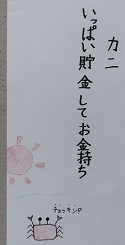 カニ
いっぱい貯金してお金持ち
チョッキンP